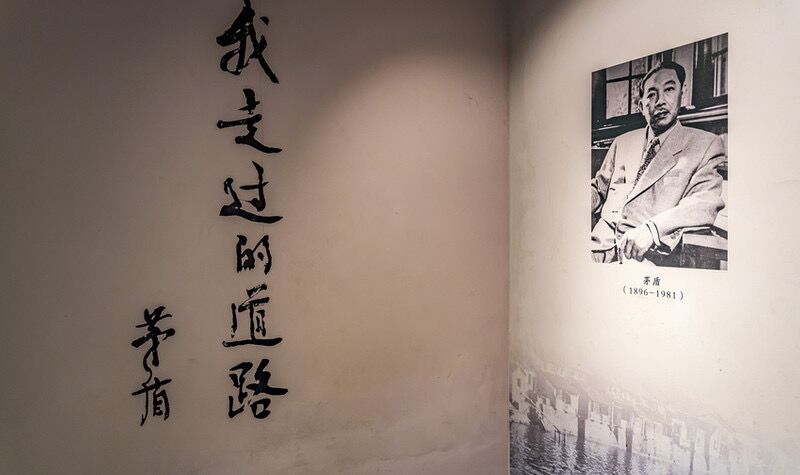 我走过的道路
茅盾
茅盾
(1896-1981)